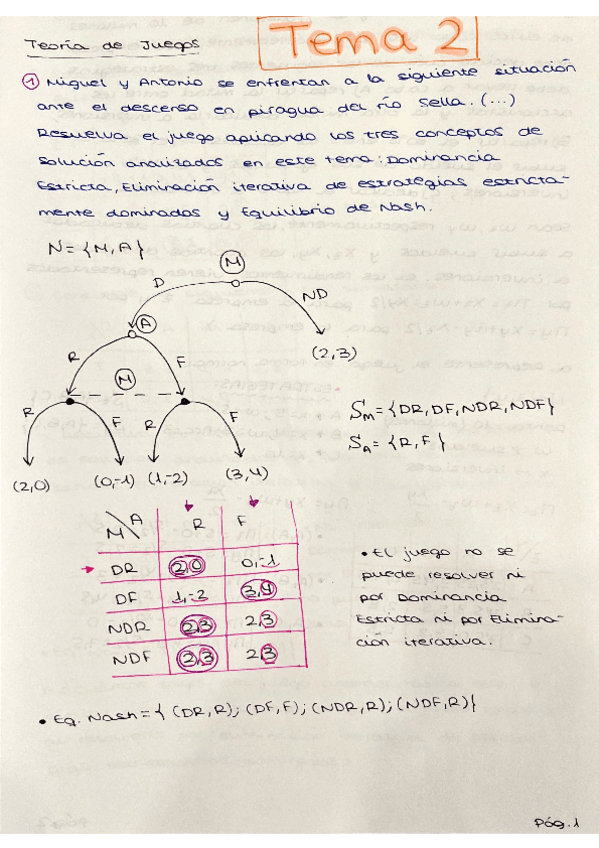 Teoría de Juegos
Tema 2
① Miguel y Antonio se enfrentan a la siguiente situación
ante el descenso en piragua del río Sella. (...)
Resuelva el juego aplicando los tres conceptos de
solución analizados en este tema: Dominancia
Estricta, Eliminación iterativa de estrategias estricta-
mente dominadas y Equilibrio de Nash.
N = {M, A}
M
D
ND
A
(2,3)
R
F
M
R
F
R
F
(2,0)
(0,-1)
(1,-2)
(3,4)
SM = {DR, DF, NDR, NDF}
SA = {R, F}
M \ A R F
DR 2,0 0,-1
DF 1,-2 3,4
NDR 2,3 2,3
NDF 2,3 2,3
• El juego no se
puede resolver ni
por Dominancia
Estricta ni por Elimina-
ción iterativa.
• Eq. Nash = { (DR,R); (DF,F); (NDR,R); (NDF,R)}
Pág. 1